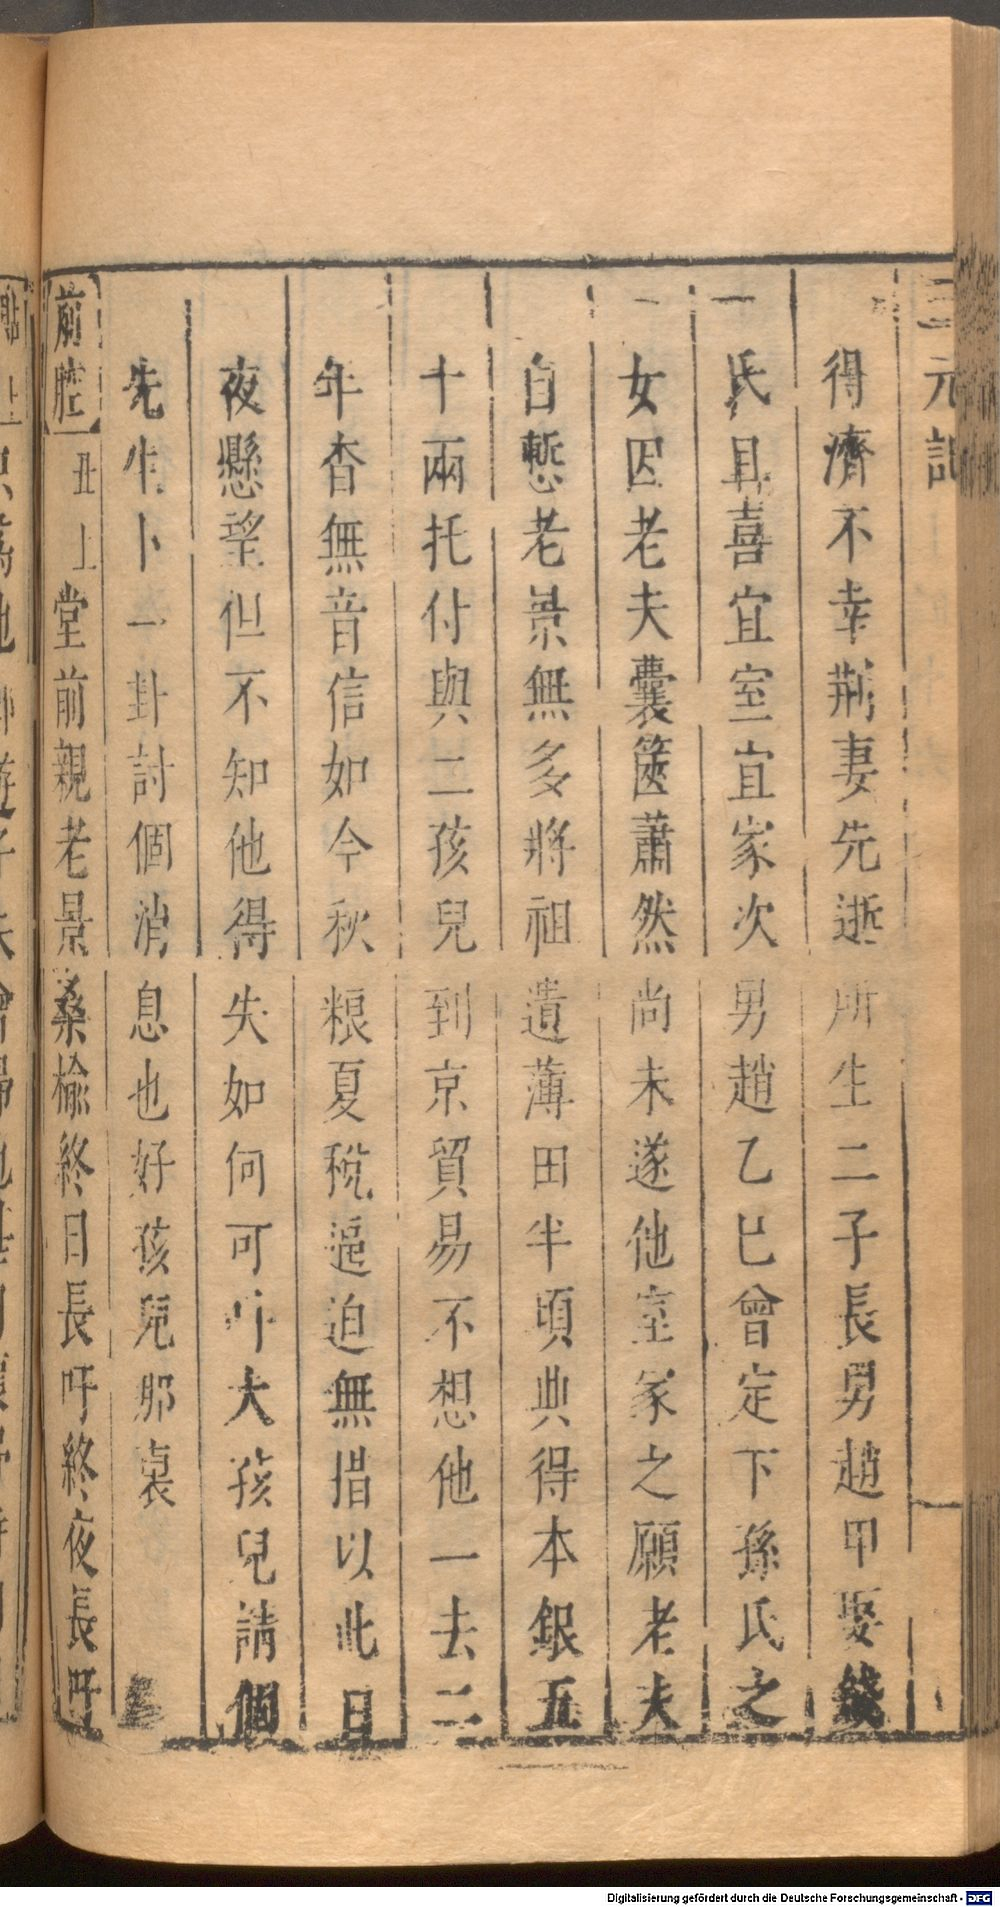 三元記
得濟不幸荆妻先逝所生二子長男趙甲娶錢
氏且喜宜室宜家次男趙乙已曾定下孫氏之
女因老夫囊篋蕭然尚未遂他室家之願老夫
自慙老景無多將祖遺薄田半頃典得本銀五
十兩托付與二孩兒到京貿易不想他一去二
年杳無音信如今秋粮夏稅逼迫無措以此日
夜懸望但不知他得失如何可吁大孩兒請個
先生卜一卦討個消息也好孩兒那裏
前腔 丑上堂前親老景桑榆終日長吁終夜長吁
Digitalisierung gefördert durch die Deutsche Forschungsgemeinschaft - DFG